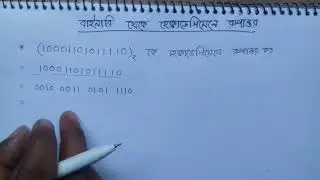 বাইনারি থেকে হেক্সাডেসিমেলে রূপান্তর
* (10001101011110)₂ কে হেক্সাডেসিমেলে রূপান্তর কর
= 10001101011110
= 0010 0011 0101 1110
=